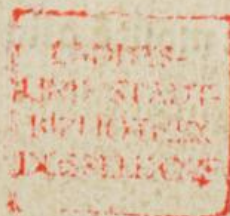 LANDES-
UND STADT-
BIBLIOTHEK
DÜSSELDORF